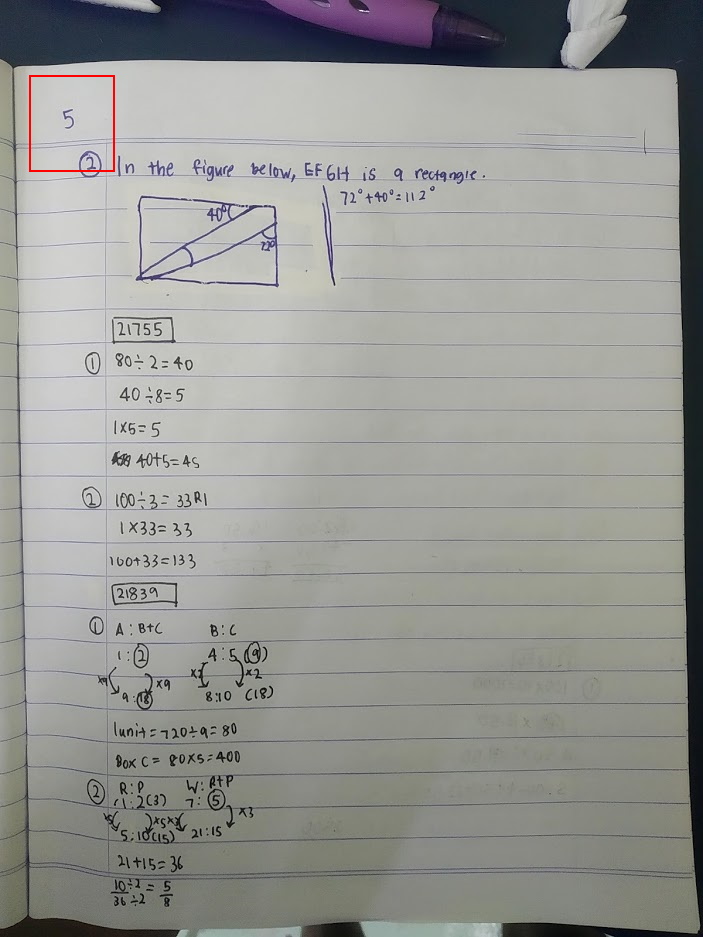 5
② In the figure below, EFGH is a rectangle.
72°+40°=112°
40°
72°
21755
① 80÷2=40
40÷8=5
1×5=5
40+5=45
② 100÷3=33R1
1×33=33
100+33=133
21839
① A:B+C B:C
1:2 4:5 (9)
×9 ×9 ×2 ×2
9:18 8:10 (18)
1unit=720÷9=80
Box C = 80×5=400
② R:P W:R+P
1:2(3) 7:5
×5 ×5 ×3 ×3
5:10(15) 21:15
21+15=36
10÷2/36÷2 = 5/8